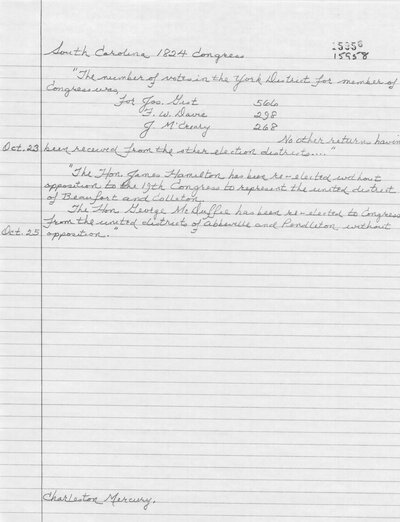 15958
15958
South Carolina 1824 Congress
"The number of votes in the York District for member of
Congress was
For Jos. Gist 566
F. W. Davie 298
J. McCreary 268
No other return having
Oct. 23 been received from the other election districts...."
"The Hon. James Hamilton has been re-elected without
opposition to the 19th Congress to represent the united district
of Beaufort and Colleton.
The Hon. George McDuffie has been re-elected to Congress
from the united districts of Abbeville and Pendleton, without
Oct. 25 opposition."
Charleston Mercury.